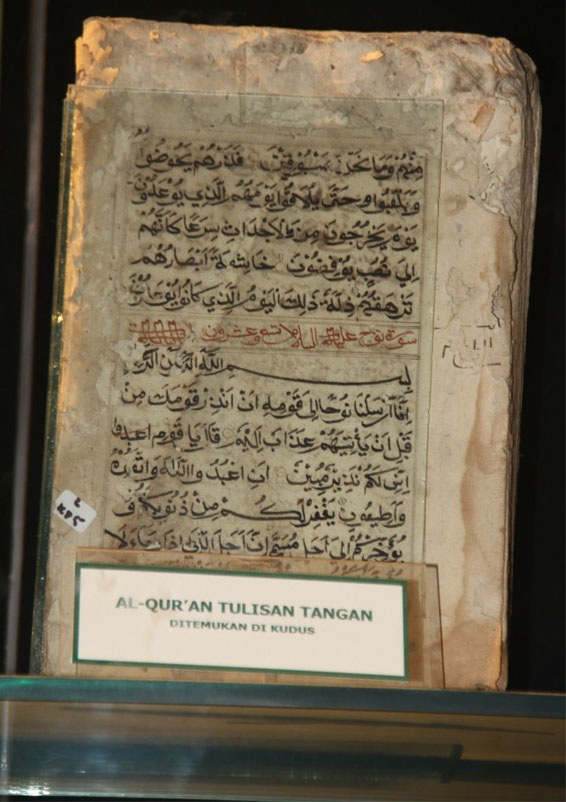 مِنْهُمْ وَمَا نَحْنُ بِمَسْبُوقِيْنَ فَذَرْهُمْ يَخُوضُوْا
وَيَلْعَبُوْا حَتَّى يُلَاقُوْا يَوْمَهُمُ الَّذِي يُوْعَدُوْنَ
يَوْمَ يَخْرُجُوْنَ مِنَ الْاَجْدَاثِ سِرَاعًا كَاَنَّهُمْ
اِلَي نُصُبٍ يُوْفِضُوْنَ خَاشِعَةً اَبْصَارُهُمْ
تَرْهَقُهُمْ ذِلَّةٌ ذٰلِكَ الْيَوْمُ الَّذِي كَانُوْا يُوْعَدُوْنَ
سورة نوح عليه السلام تسع وعشرون
بِسْمِ اللّٰهِ الرَّحْمٰنِ الرَّحِيْمِ
اِنَّا اَرْسَلْنَا نُوْحًا اِلَى قَوْمِهِ اَنْ اَنْذِرْ قَوْمَكَ مِنْ
قَبْلِ اَنْ يَأْتِيَهُمْ عَذَابٌ اَلِيْمٌ قَالَ يَا قَوْمِ
اِنِّي لَكُمْ نَذِيْرٌ مُبِيْنٌ اَنِ اعْبُدُوا اللّٰهَ وَاتَّقُوْهُ
وَاَطِيْعُوْنِ يَغْفِرْ لَكُمْ مِنْ ذُنُوْبِكُمْ وَ
يُؤَخِّرْكُمْ اِلَى اَجَلٍ مُسَمًّى اِنَّ اَجَلَ اللّٰهِ اِذَا جَاءَ لَا
AL-QUR'AN TULISAN TANGAN
DITEMUKAN DI KUDUS